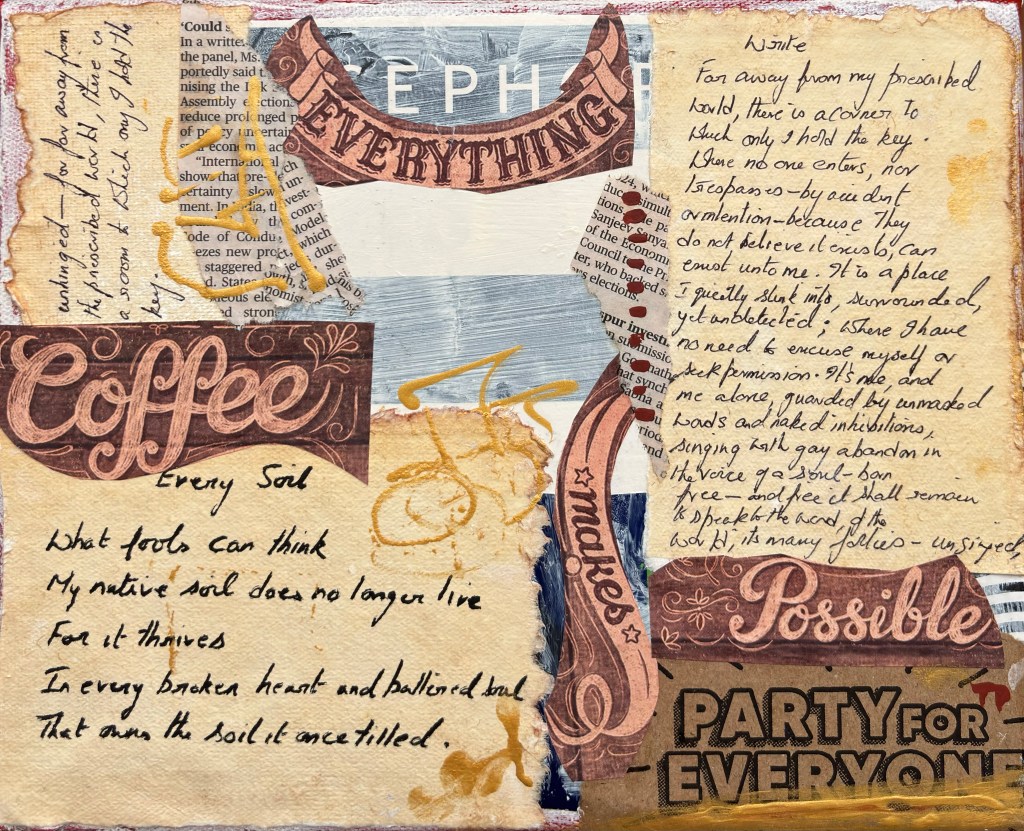 unhinged — far far away from
the prescribed world, there is
a room to which only I hold the
key.
'Could s
In a writte
the panel, Ms.
portedly said t
nising the Lok S
Assembly elections
reduce prolonged p
of policy uncertain
economi
"International
shows that pre-
certainty slow
ment. In India, th
ode of Condu
ezes new proj
staggered
d. States
eous ele
strong
un-
vest-
com-
Model
which
dur-
she
EPHO
EVERYTHING
2024, w
simult
tions
Sanjeev Sanya
of the Econom
Council to the Pr
ter, who backed s
ws elections.
pur investi
on submissio
Go nath
hat synch
Sabha a
riod
and
Write
Far away from my prescribed
world, there is a corner to
which only I hold the key.
Where no one enters, nor
trespasses – by accident
or intention – because they
do not believe it exists, can
exist unto me. It is a place
I quietly slink into, surrounded,
yet undetected; where I have
no need to excuse myself or
seek permission. It's me, and
me alone, guarded by unmasked
words and naked inhibitions,
singing with gay abandon in
the voice of a soul – born
free – and free it shall remain
to speak to the word, of the
world, its many follies – unsigned,
Coffee
makes
Possible
Every Soil
What fools can think
My native soil does no longer live
For it thrives
In every broken heart and battered soul
That owns the soil it once tilled.
PARTY FOR
EVERYONE